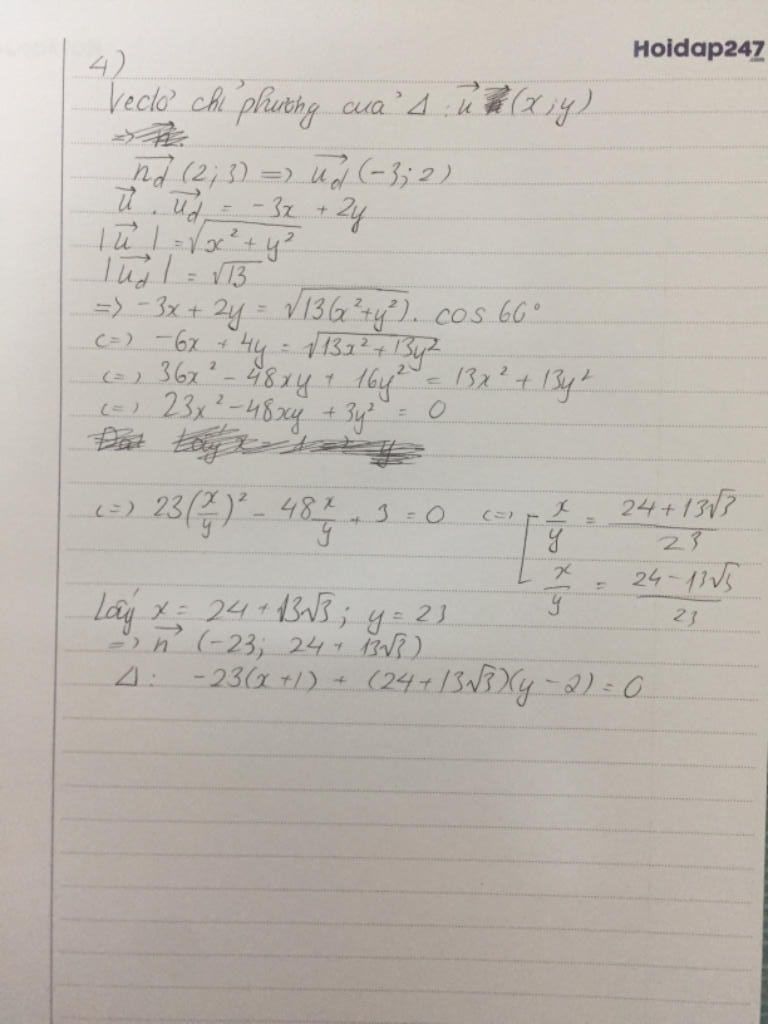 Hoidap247
.com
4)
Vectơ chỉ phương của Δ : u⃗ (x;y)
n⃗d (2;3) => u⃗d (-3;2)
u⃗ . u⃗d = -3x + 2y
|u⃗| = √(x² + y²)
|u⃗d| = √13
=> -3x + 2y = √(13(x²+y²)) . cos 60°
<=> -6x + 4y = √(13x² + 13y²)
<=> 36x² - 48xy + 16y² = 13x² + 13y²
<=> 23x² - 48xy + 3y² = 0
<=> 23(x/y)² - 48 x/y + 3 = 0 <=> [ x/y = (24 + 13√3)/23
x/y = (24 - 13√3)/23
Lấy x = 24 + 13√3 ; y = 23
=> n⃗ (-23; 24 + 13√3)
Δ: -23(x+1) + (24 + 13√3)(y - 2) = 0